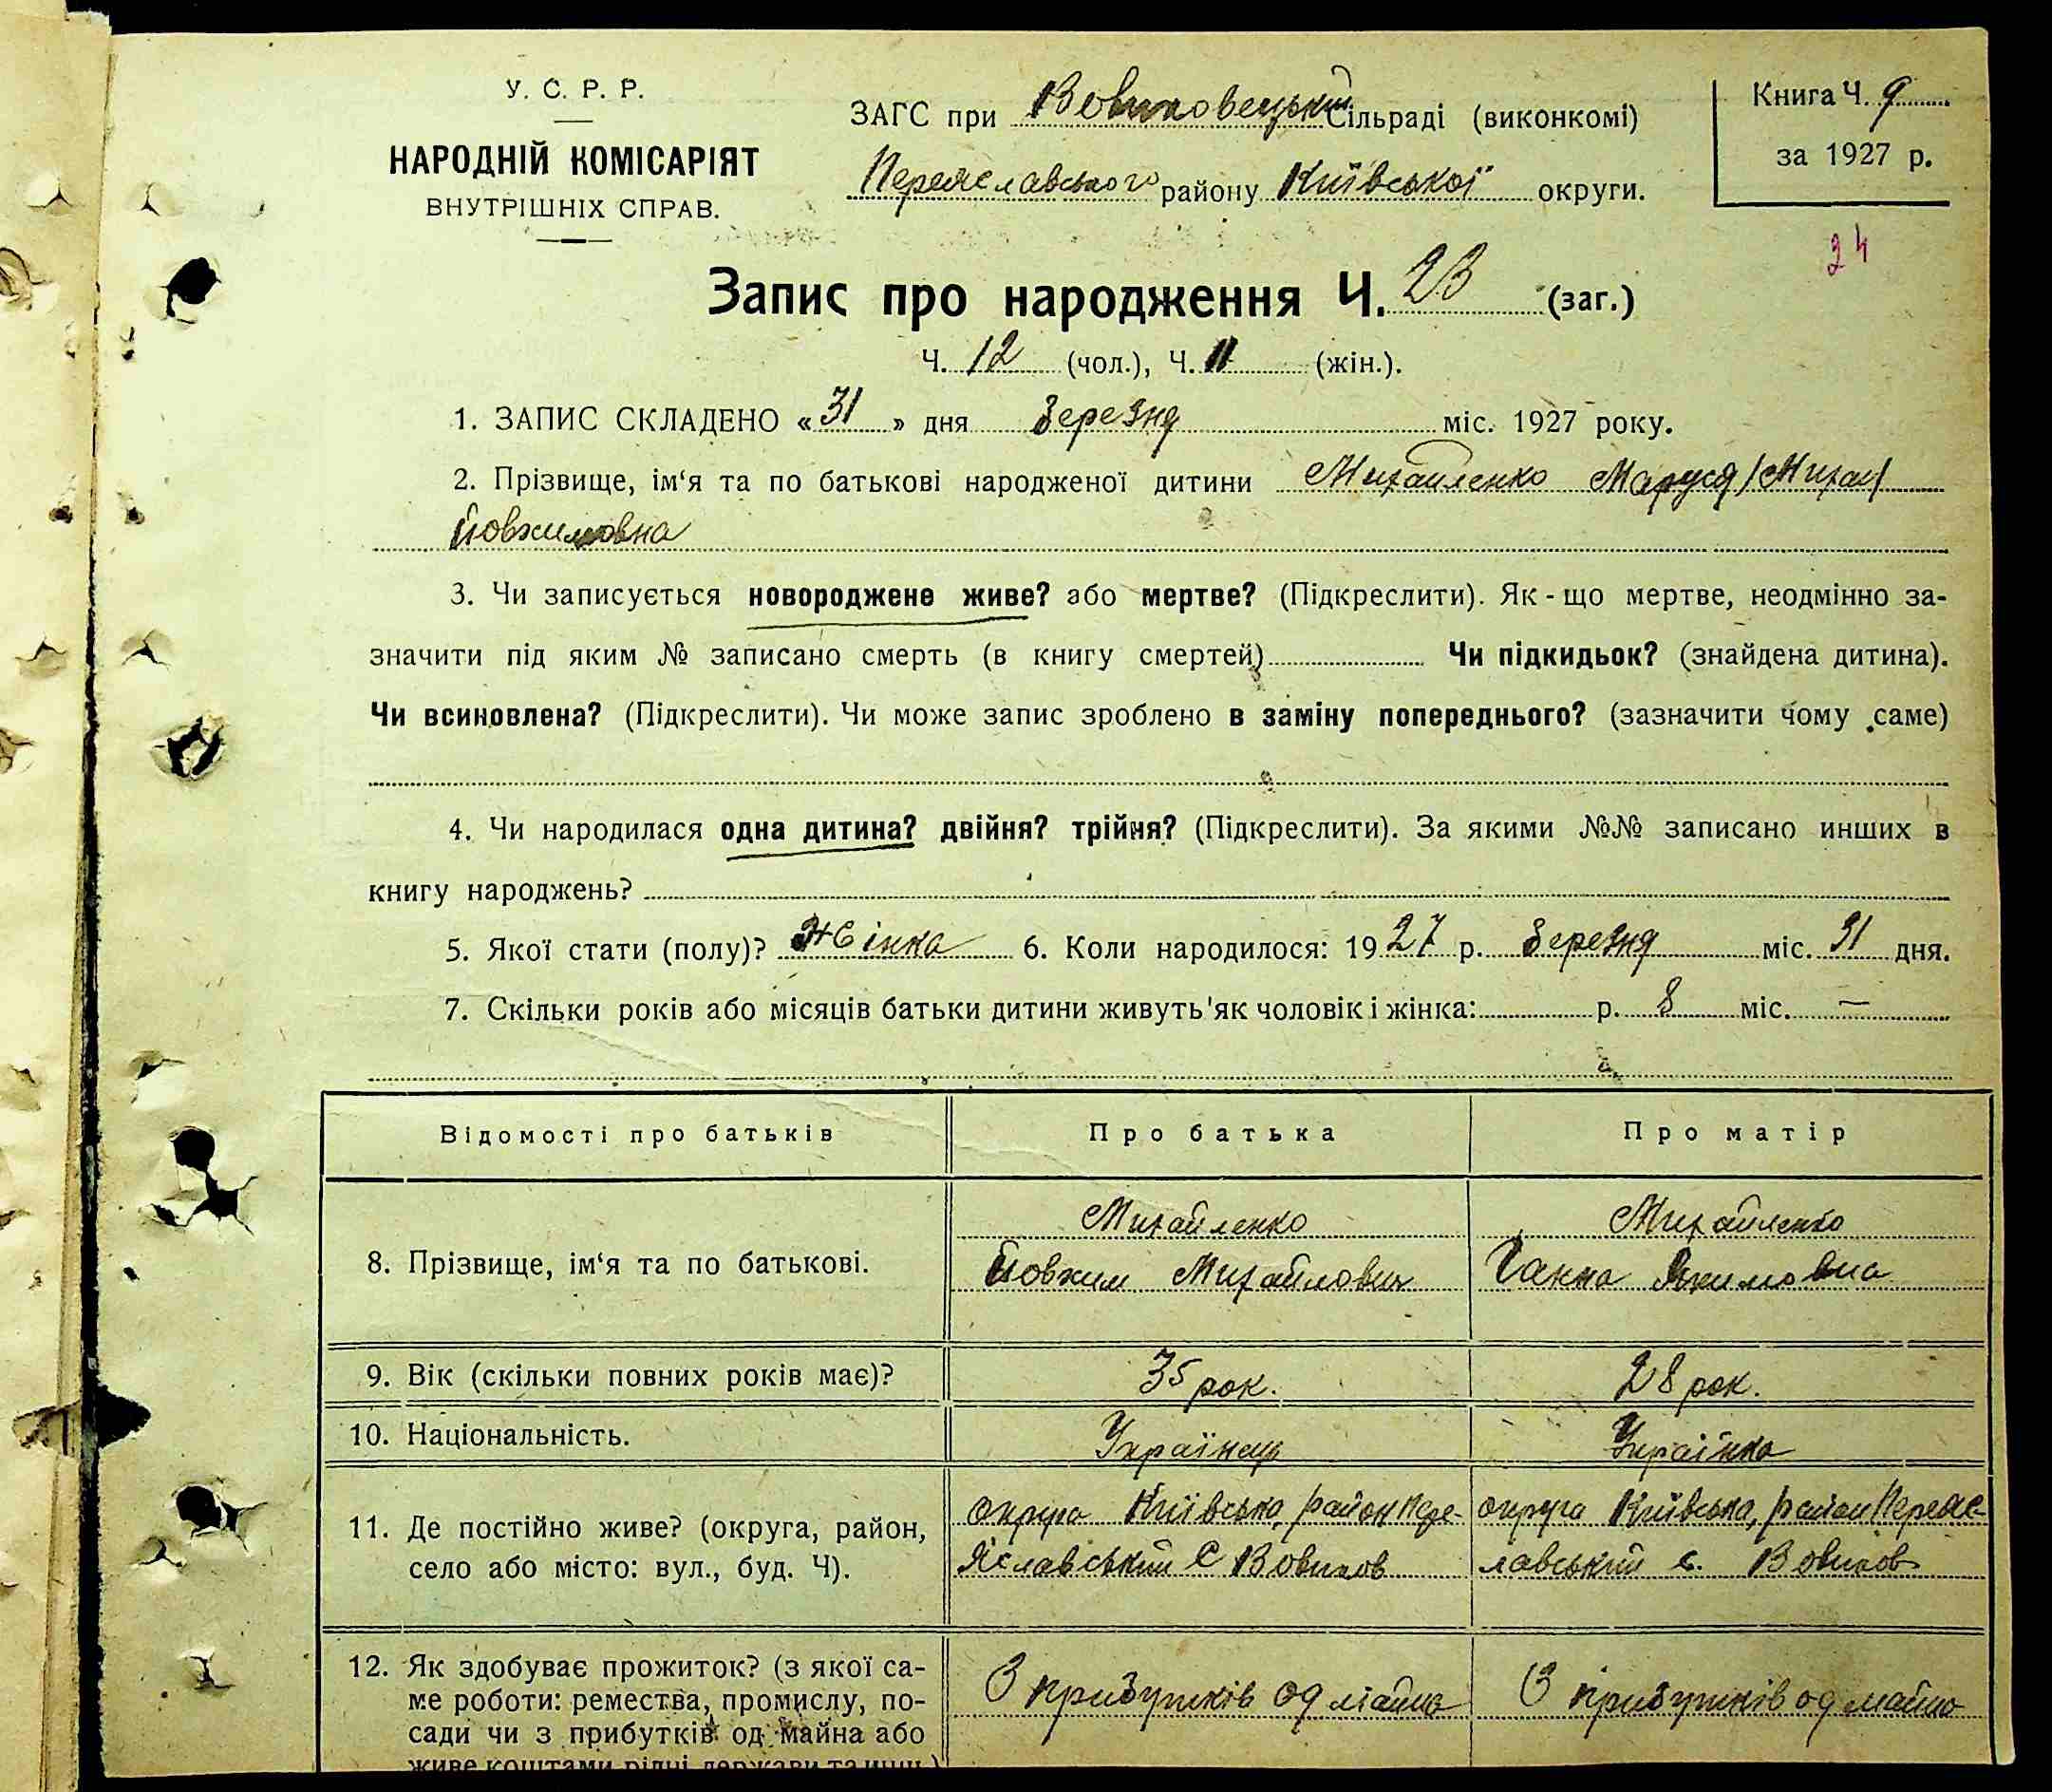 У. С. Р. Р.
НАРОДНІЙ КОМІСАРІЯТ
ВНУТРІШНІХ СПРАВ.
ЗАГС при Вовчковецькій Сільраді (виконкомі)
Переяславського району Київської округи.
Книга Ч. 9
за 1927 р.
24
Запис про народження Ч. 23 (заг.)
Ч. 12 (чол.), Ч. 11 (жін.).
1. ЗАПИС СКЛАДЕНО «31» дня Березня міс. 1927 року.
2. Прізвище, ім‘я та по батькові народженої дитини Михайленко Маруся
Йовхимовна
3. Чи записується новороджене живе? або мертве? (Підкреслити). Як-що мертве, неодмінно за-
значити під яким № записано смерть (в книгу смертей) Чи підкидьок? (знайдена дитина).
Чи всиновлена? (Підкреслити). Чи може запис зроблено в заміну попереднього? (зазначити чому саме)
4. Чи народилася одна дитина? двійня? трійня? (Підкреслити). За якими №№ записано инших в
книгу народжень?
5. Якої стати (полу)? Жінка 6. Коли народилося: 1927 р. Березня міс. 31 дня.
7. Скільки років або місяців батьки дитини живуть як чоловік і жінка: р. 8 міс. —
Відомості про батьків Про батька Про матір
8. Прізвище, ім‘я та по батькові.
Михайленко
Йовхим Михайлович
Михайленко
Ганна Якимовна
9. Вік (скільки повних років має)? 35 рок. 28 рок.
10. Національність. Українець Українка
11. Де постійно живе? (округа, район,
село або місто: вул., буд. Ч).
округа Київська, район Пере-
яславський с Вовчков
округа Київська, район Переяс-
лавський с. Вовчков
12. Як здобуває прожиток? (з якої са-
ме роботи: ремества, промислу, по-
сади чи з прибутків од майна або
живе коштами рідні держави та инш.)
З прибутків од майна
З прибутків од майна